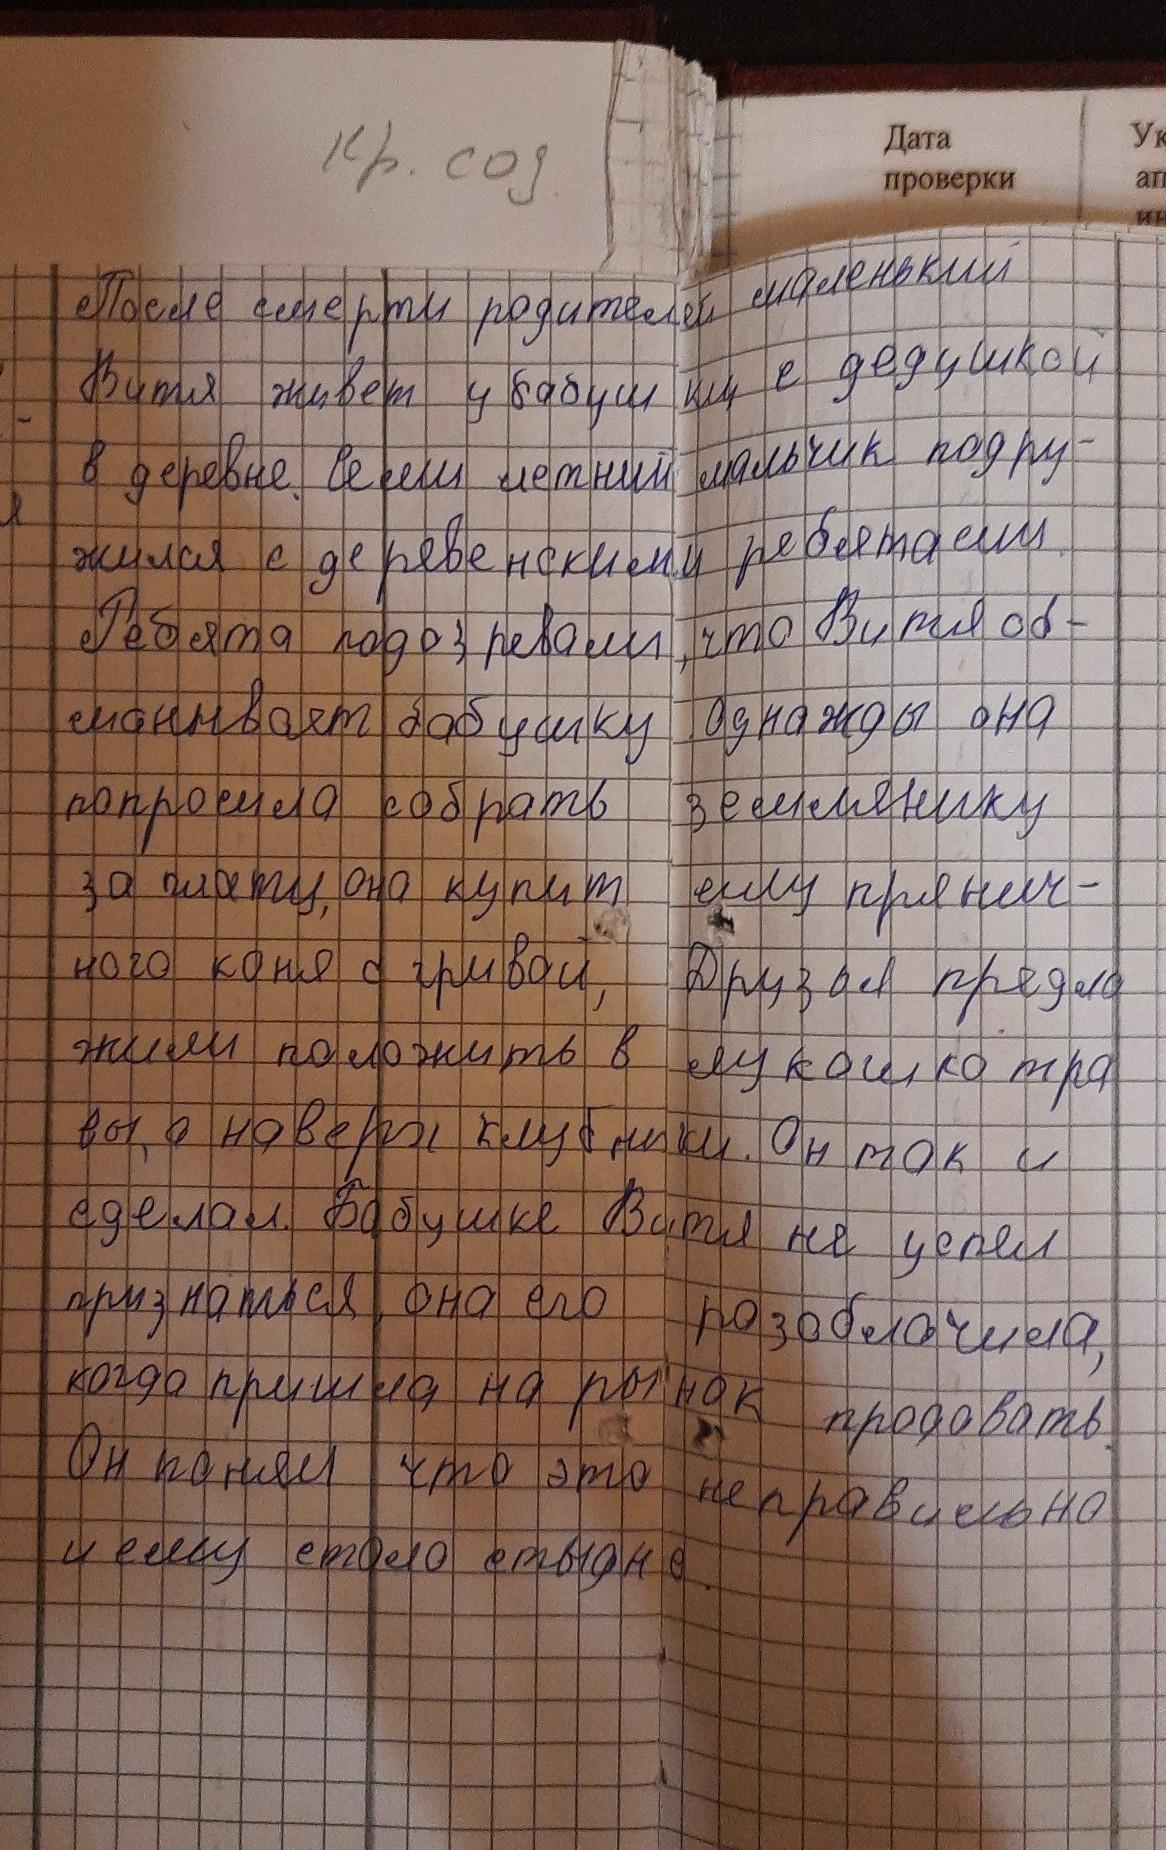 кр. сод.
Дата
проверки
Ук
ап
ин
После смерти родителей маленький
Витя живет у бабушки с дедушкой
в деревне. Семи летний мальчик подру-
жился с деревенскими ребятами.
Ребята подозревали, что Витя об-
манывает бабушку. Однажды она
попросила собрать землянику
за плату, она купит ему прянич-
ного коня с гривой, Друзья предло
жили положить в лукошко тра
вы, а наверх клубники. Он так и
сделал. Бабушке Витя не успел
признаться, она его разоблачила,
когда пришла на рынок продавать.
Он понял что это неправильно
и ему стало стыдно.
я